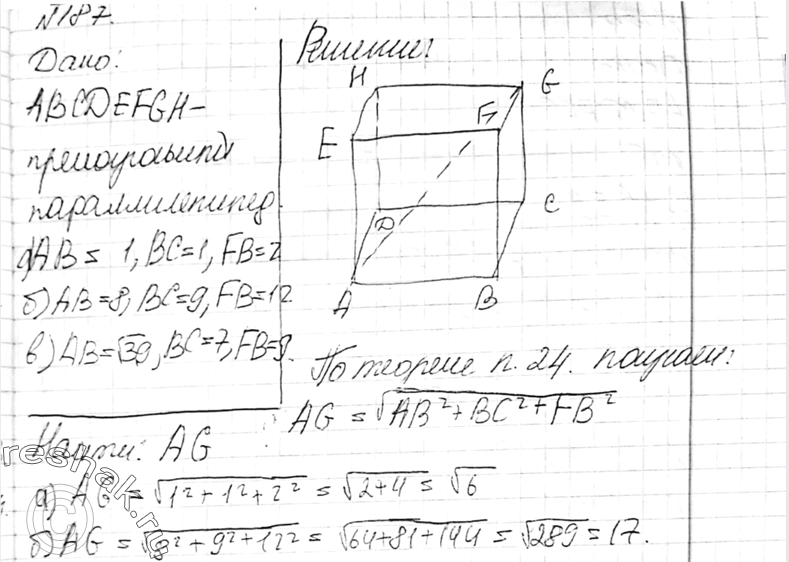 №187.
Дано:
ABCDEFGH –
прямоугольный
параллилепипед.
а) AB = 1, BC = 1, FB = 2
б) AB = 8, BC = 9, FB = 12
в) AB = √39, BC = 7, FB = 9.
Найти: AG
Решение:
H
G
E
F
D
C
A
B
По теореме п. 24. получаем:
AG = √AB² + BC² + FB²
а) AG = √1² + 1² + 2² = √2+4 = √6
б) AG = √8² + 9² + 12² = √64+81+144 = √289 = 17.
reshak.ru